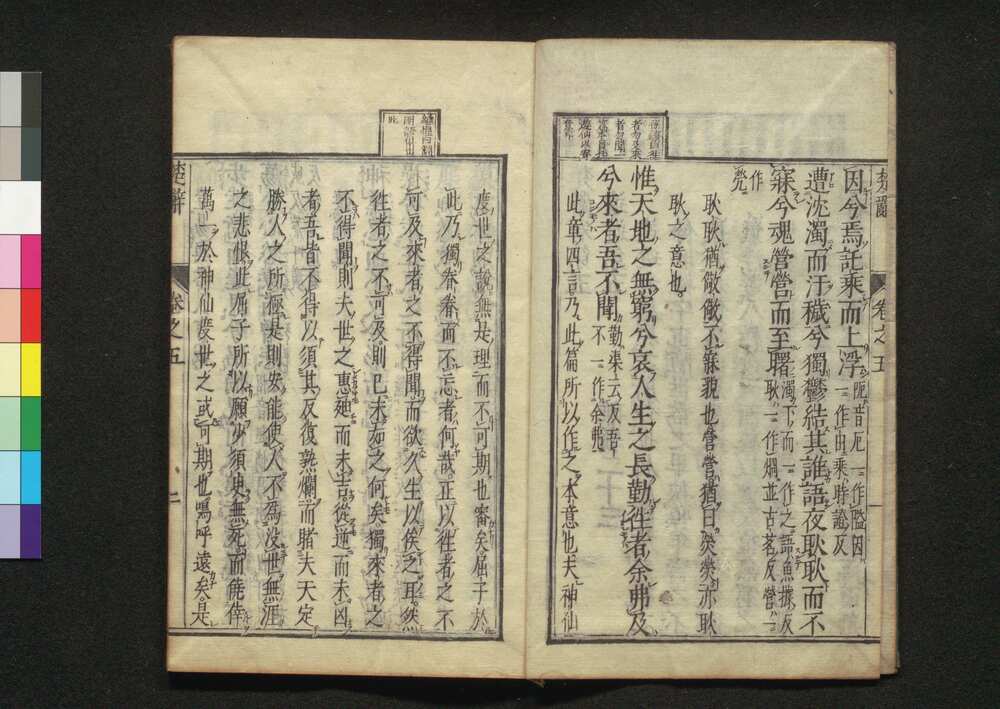 楚辭
卷之五
因兮焉託乘而上浮
阨音厄一作隘因
一作由乘時證反
遭沈濁而汙穢兮獨鬱結其誰語夜耿耿而不
寐兮魂營營而至曙
濁下而一作之語魚據反
耿一作炯並古茗反營一
作
煢
耿耿猶儆儆不寐貌也營營猶曰煢煢亦耿
耿之意也
惟天地之無窮兮哀人生之長勤往者余弗及
兮來者吾不聞
勤渠云反吾
不一作余弗
此章四言乃此篇所以作之本意也夫神仙
度世之說無是理而不可期也審矣屈子於
此乃獨眷眷而不忘者何哉正以往者之不
可及來者之不得聞而欲久生以俟之耳然
往者之不可及則已末如之何矣獨來者之
不得聞則夫世之惠迪而未吉從逆而未凶
者吾皆不得以須其反復熟爛而睹夫天定
勝人之所極是則安能使人不為没世無涯
之悲恨此屈子所以願少須臾無死而僥倖
萬一於神仙度世之或可期也嗚呼遠矣是
楚辭
卷之五
二